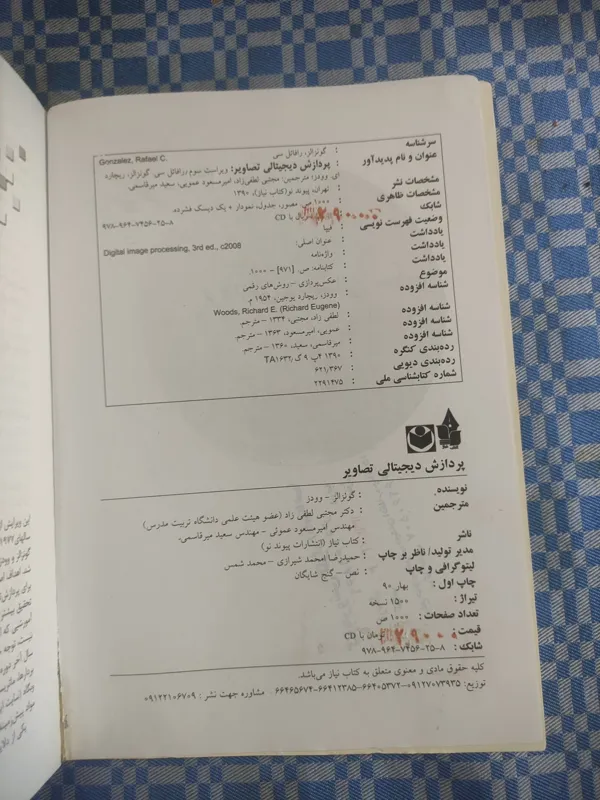 سرشناسه : گونزالز، رافائل سی Gonzalez, Rafael C.
عنوان و نام پدیدآور : پردازش دیجیتالی تصاویر: ویراست سوم ‌رافائل سی. گونزالز، ریچارد
ای. وودز؛ مترجمین: مجتبی لطفی‌زاد، امیرمسعود عمویی، سعید میرقاسمی.
مشخصات نشر : تهران، پیوند نو(کتاب نیاز)، ۱۳۹۰
مشخصات ظاهری : ۱۰۰۰ ص. مصور، جدول، نمودار + یک دیسک فشرده.
شابک : ریال با CD ۹۷۸-۹۶۴-۷۴۵۶-۲۵-۸
وضعیت فهرست نویسی : فیپا
یادداشت : عنوان اصلی: Digital image processing, 3rd ed., c2008
یادداشت : واژه‌نامه
یادداشت : کتابنامه: ص. [۹۷۱] - ۱۰۰۰.
موضوع : عکس‌پردازی - روش‌های رقمی
شناسه افزوده : وودز، ریچارد یوجین، ۱۹۵۴ م.
Woods, Richard E. (Richard Eugene)
شناسه افزوده : لطفی زاد، مجتبی، ۱۳۳۴ - مترجم.
شناسه افزوده : عمویی، امیرمسعود، ۱۳۶۳ - مترجم.
شناسه افزوده : میرقاسمی، سعید، ۱۳۶۰ - مترجم
رده‌بندی کنگره : ۱۳۹۰ ۴پ ۹ گ/TA۱۶۳۲
رده‌بندی دیویی : ۶۲۱/۳۶۷
شماره کتابشناسی ملی : ۲۲۹۱۴۷۵
پردازش دیجیتالی تصاویر
نویسنده : گونزالز - وودز
مترجمین : دکتر مجتبی لطفی زاد (عضو هیئت علمی دانشگاه تربیت مدرس)
مهندس امیرمسعود عموئی - مهندس سعید میرقاسمی.
ناشر : کتاب نیاز (انتشارات پیوند نو)
مدیر تولید/ ناظر بر چاپ : حمیدرضا (محمد شیرازی - محمد شمس
لیتوگرافی و چاپ : نص - گنج شایگان
چاپ اول : بهار ۹۰
تیراژ : ۱۵۰۰ نسخه
تعداد صفحات : ۱۰۰۰ ص
قیمت : تومان با CD
شابک : ۹۷۸-۹۶۴-۷۴۵۶-۲۵-۸
کلیه حقوق مادی و معنوی متعلق به کتاب نیاز می‌باشد.
توزیع: ۰۹۱۲۷۰۷۳۹۳۵-۶۶۴۰۵۳۷۲-۶۶۴۱۲۳۸۵-۶۶۴۶۵۶۷۴ مشاوره جهت نشر : ۰۹۱۲۲۱۰۶۷۰۹